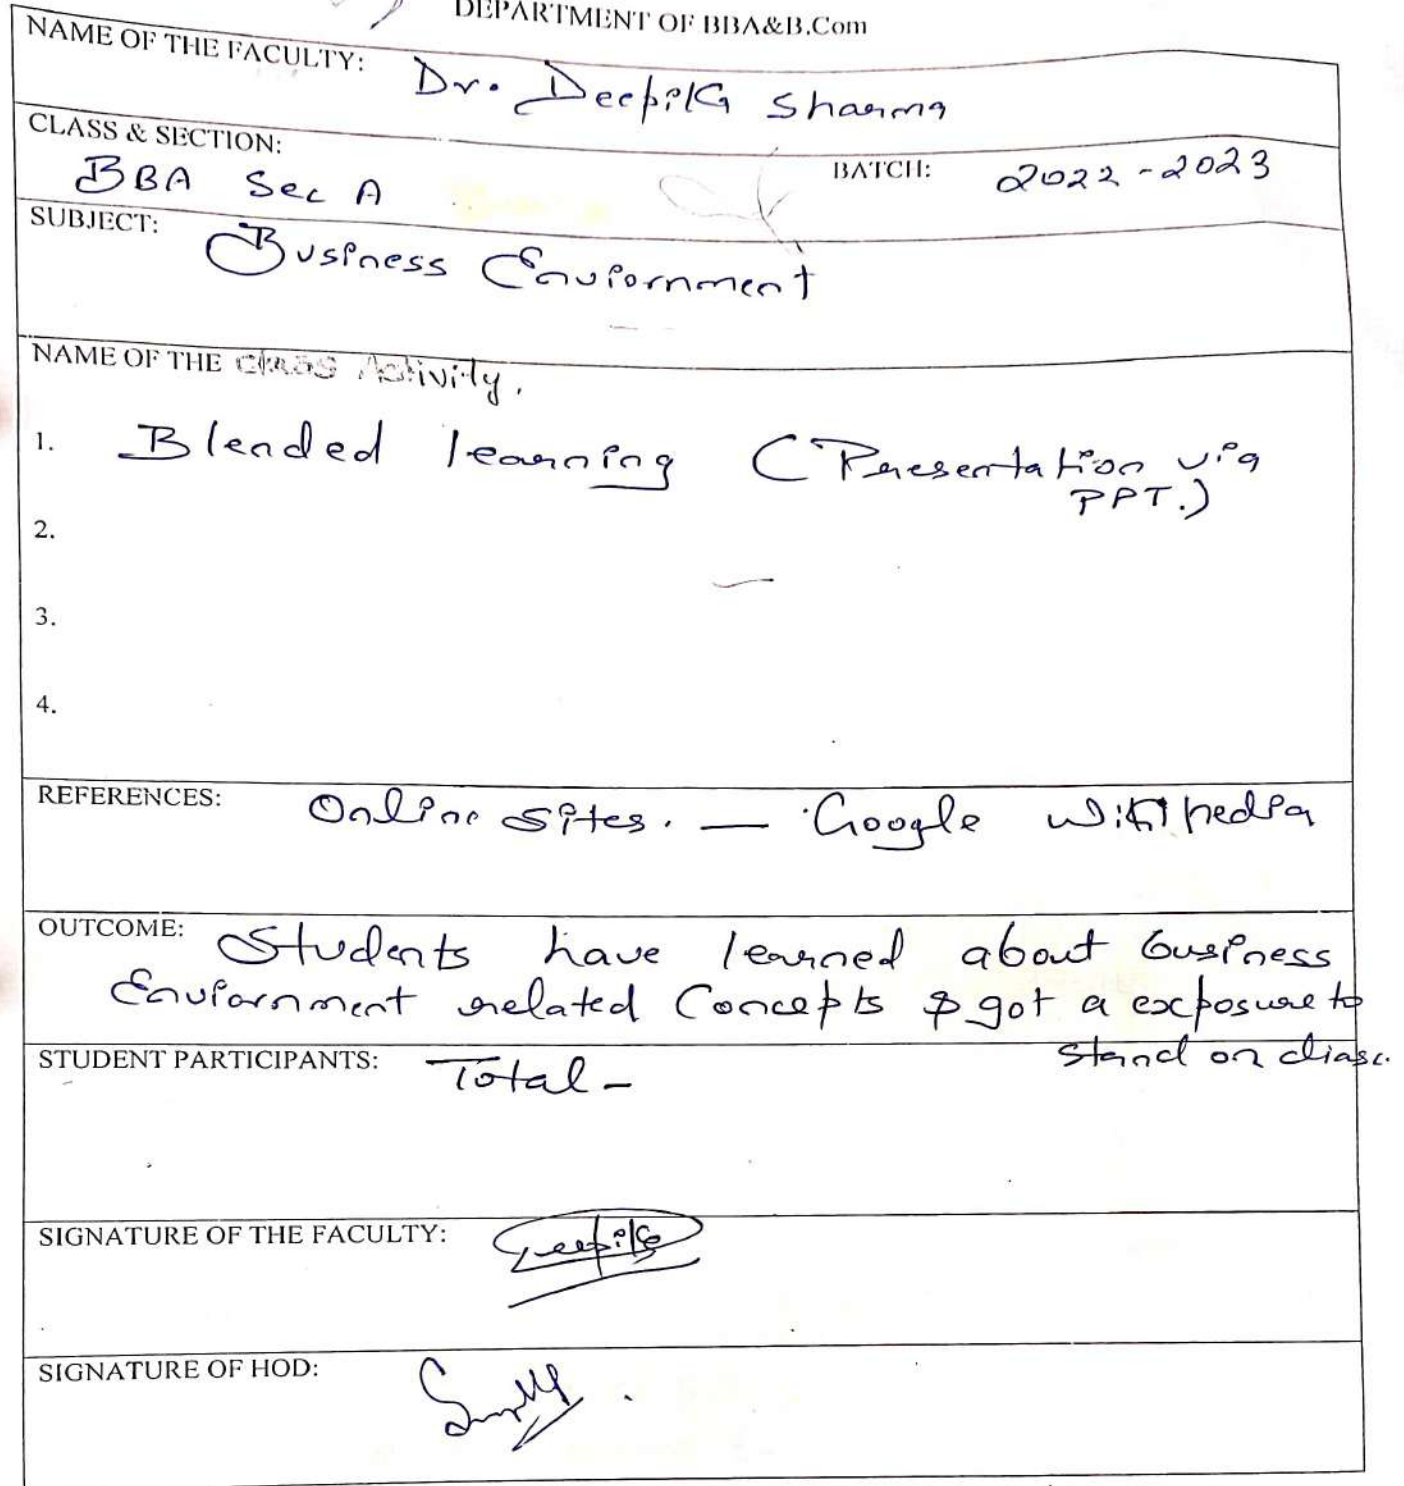 DEPARTMENT OF BBA&B.Com
NAME OF THE FACULTY: Dr. Deepika Sharma
CLASS & SECTION:
BBA Sec A BATCH: 2022-2023
SUBJECT: Business Enviornment
NAME OF THE Class Activity.
1. Blended learning (Presentation via
PPT.)
2.
3.
4.
REFERENCES: Online sites. — Google wikipedia
OUTCOME: Students have learned about business
Enviornment related Concepts & got a exposure to
stand on diasc.
STUDENT PARTICIPANTS: Total -
SIGNATURE OF THE FACULTY: Deepika
SIGNATURE OF HOD: